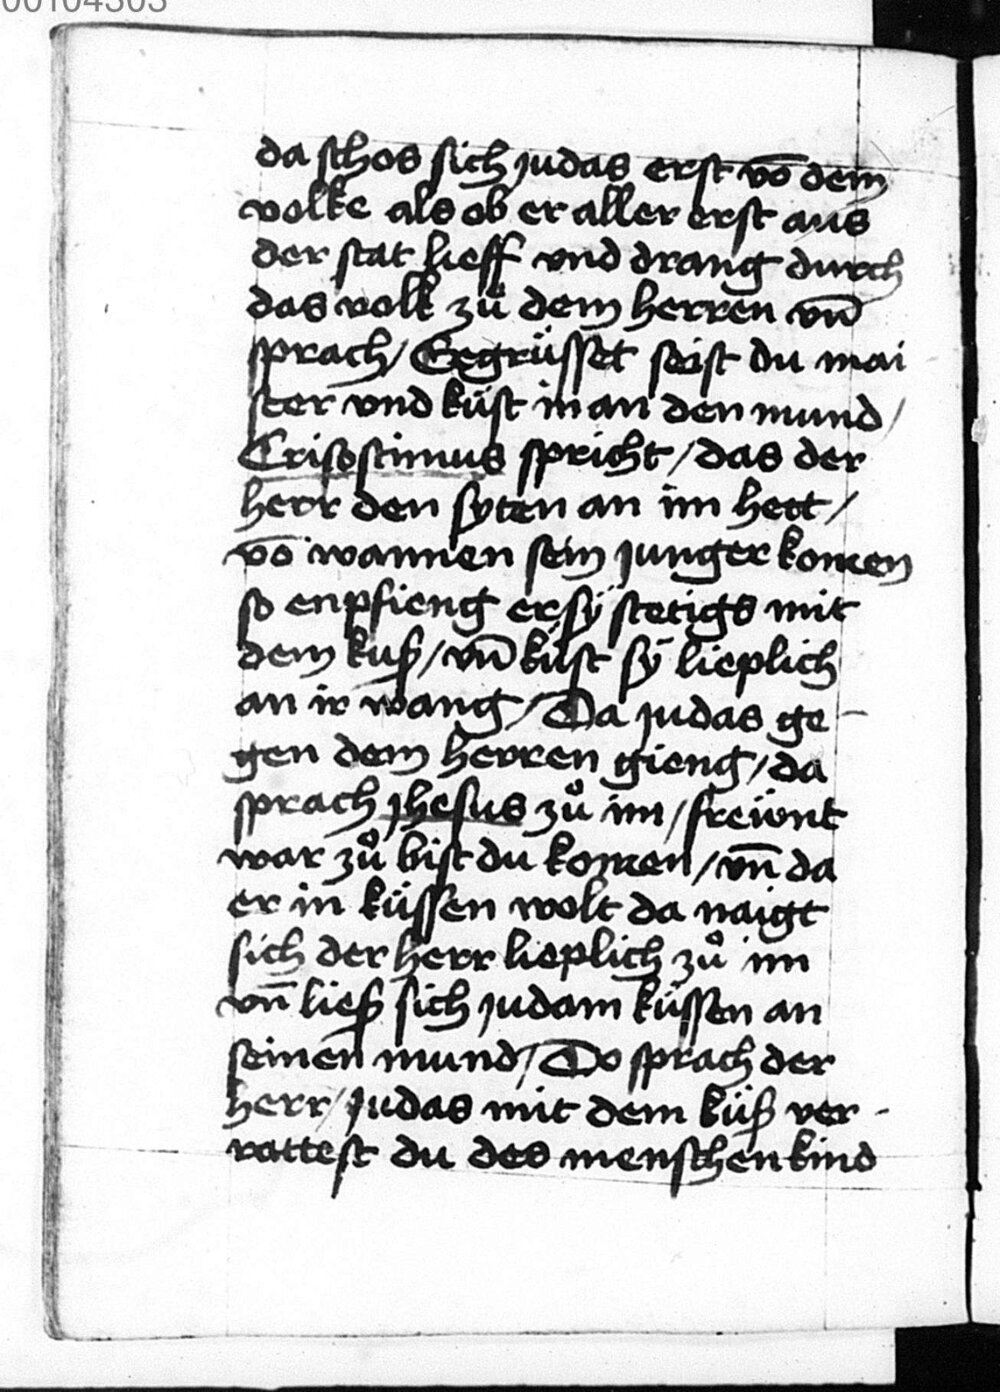 00104303
da schos sich judas erst vō dem
volke als ob er aller erst aus
der stat lieff vnd drang durch
das volk zů dem herren vn̄
sprach / Gegrüsset seist du mai
ster vnd küst in an den mund /
Crisostimus spricht / das der
herr den syten an im hett /
vō wannen sein junger komen
so enpfieng er sÿ stetigs mit
dem kuß / vn̄ küst sÿ lieplich
an ir wang / Da judas ge-
gen dem herren gieng / da
sprach jhesus zů im / freẅnt
war zů bist du komen / vn̄ da
er in küssen wolt da naigt
sich der herr lieplich zů im
vn̄ ließ sich judam küssen an
seinen mund / Do sprach der
herr / Judas mit dem küß ver-
rattest du des menschen kind